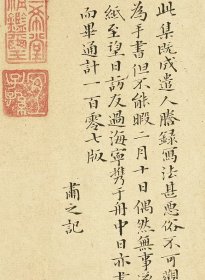 此集既成遣人謄録寫法甚惡俗不可觀
為手書但不能暇二月十日偶然無事適
紙至望日訪友過海寧携于舟中日亦書
而畢通計一百零七版
甫之記